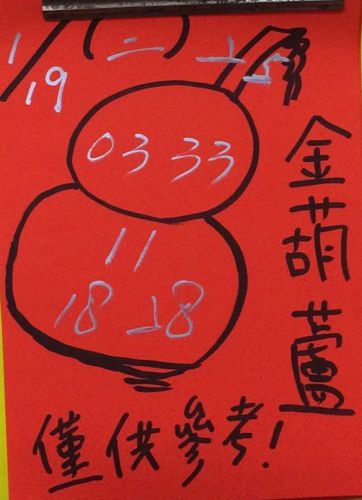 1/19 (二) 25
03 33
11
18 28
金葫蘆
僅供參考!